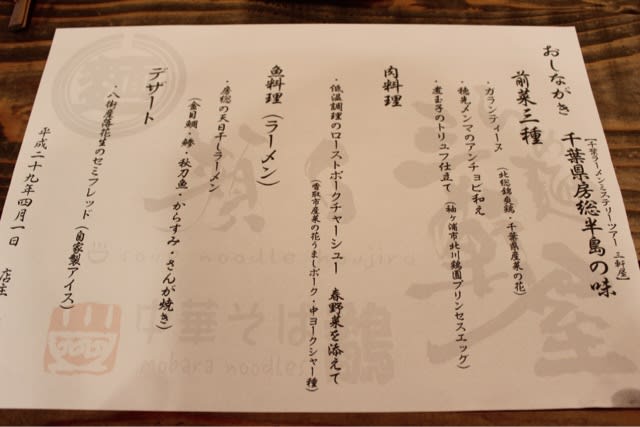 おしながき
【千葉ラーメンミステリーツアー 三軒屋】
千葉県房総半島の味
前菜三種
・ガランティーヌ
(北総錦爽鶏・千葉県産菜の花)
・穂先メンマのアンチョビ和え
・煮玉子のトリュフ仕立て
(袖ヶ浦市北川鶏園プリンセスエッグ)
肉料理
・低温調理のローストポークチャーシュー 春野菜を添えて
(香取市産菜の花うましポーク・中ヨークシャー種)
魚料理(ラーメン)
・房総の天日干しラーメン
(金目鯛・鯵・秋刀魚・からすみ・さんが焼き)
デザート
・八街産落花生のセミフレッド(自家製アイス)
平成二十九年四月一日
店主
中華そば 鶏
mobara noodles